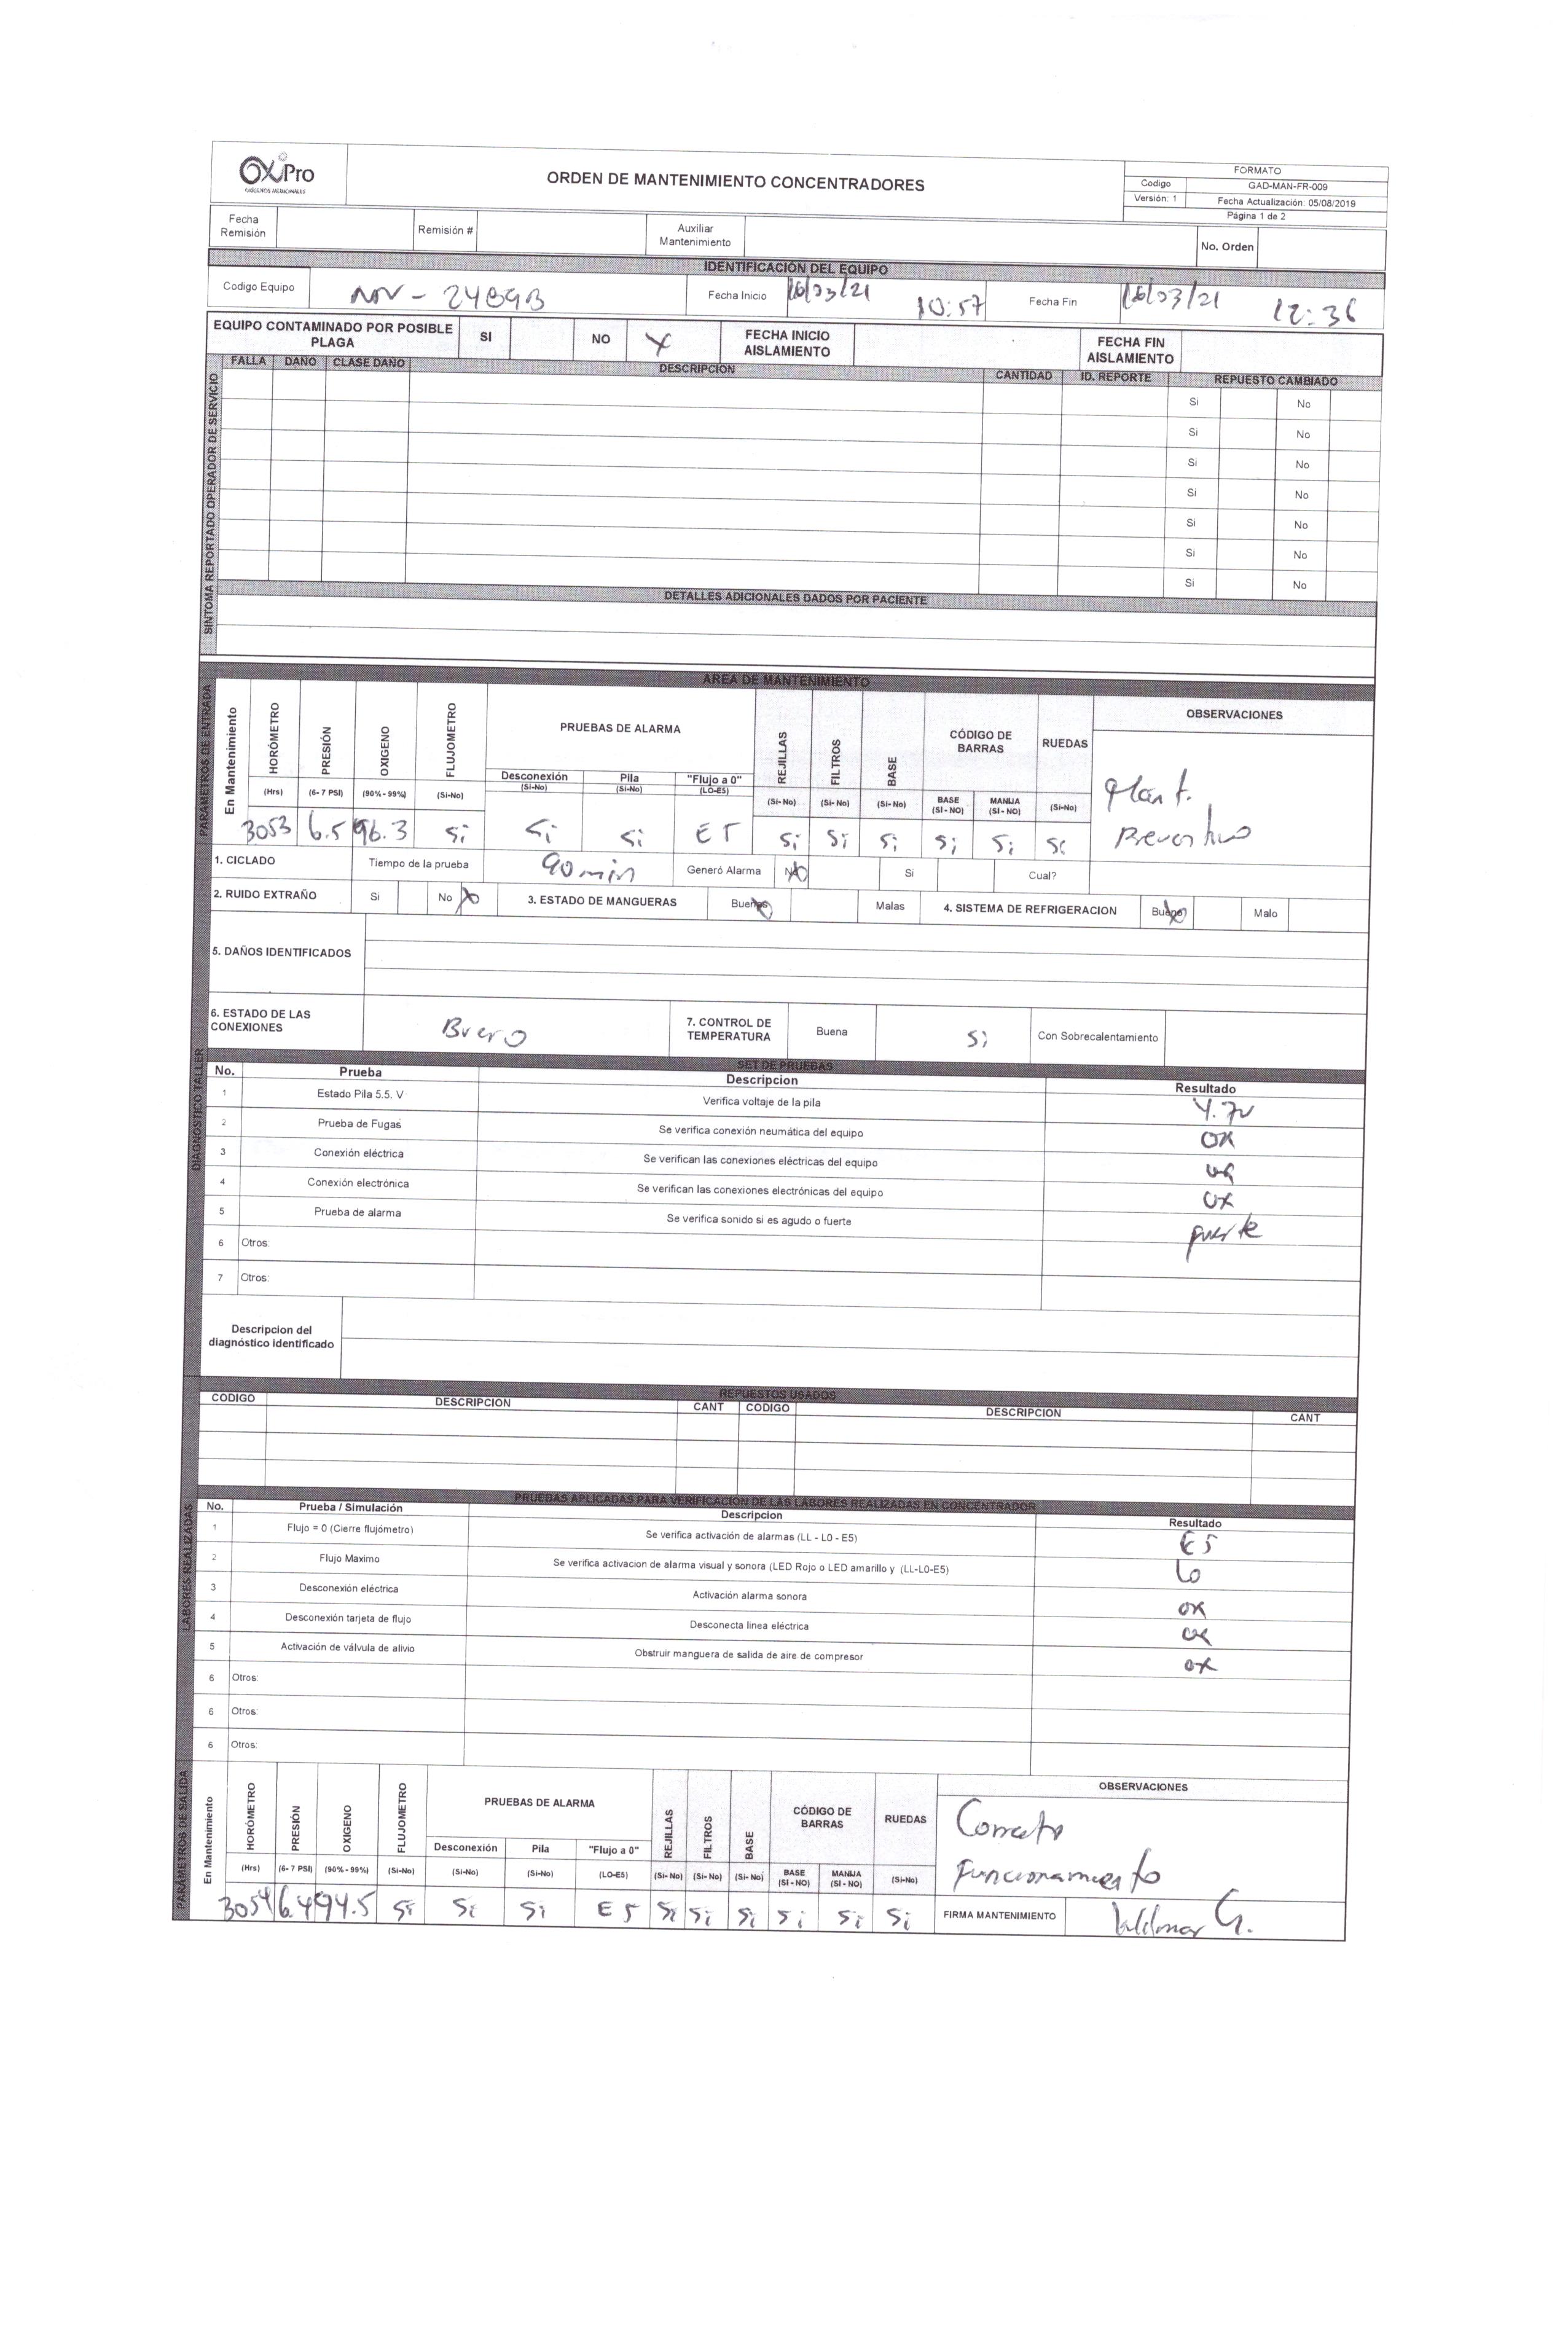 OXiPro
OXÍGENOS MEDICINALES
ORDEN DE MANTENIMIENTO CONCENTRADORES
FORMATO
Codigo GAD-MAN-FR-009
Versión: 1 Fecha Actualización: 05/08/2019
Página 1 de 2
Fecha Remisión Remisión # Auxiliar Mantenimiento No. Orden
IDENTIFICACIÓN DEL EQUIPO
Codigo Equipo Fecha Inicio 16/03/21 10:57 Fecha Fin 16/03/21 12:36
EQUIPO CONTAMINADO POR POSIBLE PLAGA SI NO X FECHA INICIO AISLAMIENTO FECHA FIN AISLAMIENTO
SINTOMA REPORTADO OPERADOR DE SERVICIO
FALLA DAÑO CLASE DAÑO DESCRIPCION CANTIDAD ID. REPORTE REPUESTO CAMBIADO
Si No
Si No
Si No
Si No
Si No
Si No
Si No
DETALLES ADICIONALES DADOS POR PACIENTE
AREA DE MANTENIMIENTO
PARÁMETROS DE ENTRADA
En Mantenimiento HORÓMETRO PRESIÓN OXIGENO FLUJOMETRO PRUEBAS DE ALARMA REJILLAS FILTROS BASE CÓDIGO DE BARRAS RUEDAS OBSERVACIONES
Desconexión Pila "Flujo a 0"
(Hrs) (6- 7 PSI) (90% - 99%) (Si-No) (Si-No) (Si-No) (LO-E5) (Si- No) (Si- No) (Si- No) BASE (SI - NO) MANIJA (SI - NO) (Si-No)
3053 6.5 96.3 Si Si Si E5 Si Si Si Si Si Si
Mant.
Preventivo
1. CICLADO Tiempo de la prueba 90 min Generó Alarma No Si Cual?
2. RUIDO EXTRAÑO Si No X 3. ESTADO DE MANGUERAS Buenas X Malas 4. SISTEMA DE REFRIGERACION Bueno X Malo
5. DAÑOS IDENTIFICADOS
6. ESTADO DE LAS CONEXIONES Bueno 7. CONTROL DE TEMPERATURA Buena Si Con Sobrecalentamiento
DIAGNOSTICO TALLER
SET DE PRUEBAS
No. Prueba Descripcion Resultado
1 Estado Pila 5.5. V Verifica voltaje de la pila 4.7v
2 Prueba de Fugas Se verifica conexión neumática del equipo OK
3 Conexión eléctrica Se verifican las conexiones eléctricas del equipo OK
4 Conexión electrónica Se verifican las conexiones electrónicas del equipo OK
5 Prueba de alarma Se verifica sonido si es agudo o fuerte fuerte
6 Otros:
7 Otros:
Descripcion del diagnóstico identificado
REPUESTOS USADOS
CODIGO DESCRIPCION CANT CODIGO DESCRIPCION CANT
LABORES REALIZADAS
PRUEBAS APLICADAS PARA VERIFICACION DE LAS LABORES REALIZADAS EN CONCENTRADOR
No. Prueba / Simulación Descripcion Resultado
1 Flujo = 0 (Cierre flujómetro) Se verifica activación de alarmas (LL - L0 - E5) E5
2 Flujo Maximo Se verifica activacion de alarma visual y sonora (LED Rojo o LED amarillo y (LL-L0-E5) Lo
3 Desconexión eléctrica Activación alarma sonora OK
4 Desconexión tarjeta de flujo Desconecta linea eléctrica OK
5 Activación de válvula de alivio Obstruir manguera de salida de aire de compresor OK
6 Otros:
6 Otros:
6 Otros:
PARÁMETROS DE SALIDA
En Mantenimiento HORÓMETRO PRESIÓN OXIGENO FLUJOMETRO PRUEBAS DE ALARMA REJILLAS FILTROS BASE CÓDIGO DE BARRAS RUEDAS OBSERVACIONES
Desconexión Pila "Flujo a 0"
(Hrs) (6- 7 PSI) (90% - 99%) (Si-No) (Si-No) (Si-No) (LO-E5) (Si- No) (Si- No) (Si- No) BASE (SI - NO) MANIJA (SI - NO) (Si-No)
Correcto
Funcionamiento
3054 6.4 94.5 Si Si Si E5 Si Si Si Si Si Si
FIRMA MANTENIMIENTO Wilmar G.